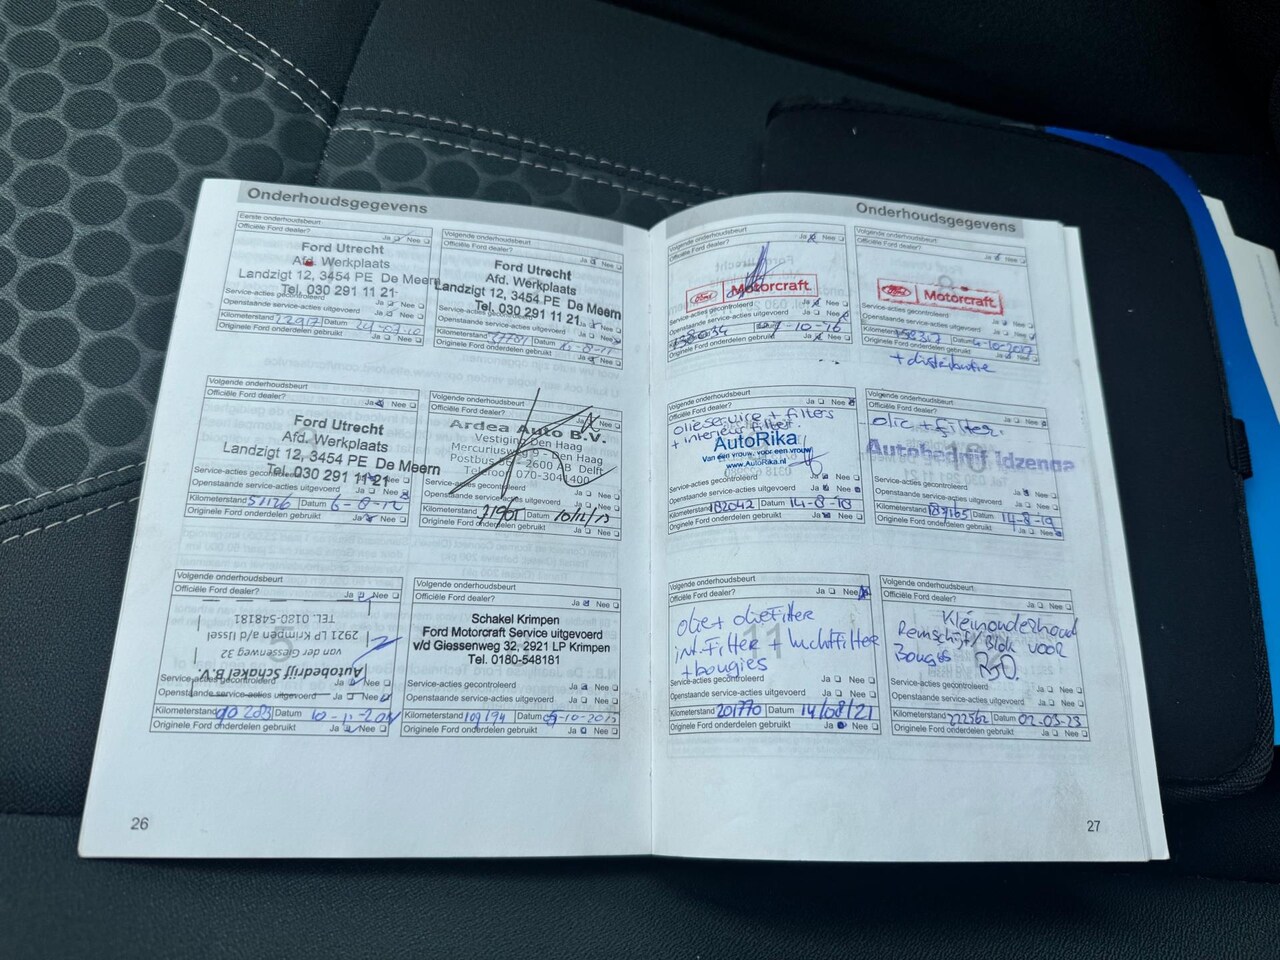 Onderhoudsgegevens
Eerste onderhoudsbeurt
Officiële Ford dealer? Ja Nee
Ford Utrecht
Afd. Werkplaats
Landzigt 12, 3454 PE De Meern
Tel. 030 291 11 21
Service-acties gecontroleerd Ja Nee
Openstaande service-acties uitgevoerd Ja Nee
Kilometerstand Datum
Originele Ford onderdelen gebruikt Ja Nee
Volgende onderhoudsbeurt
Officiële Ford dealer? Ja Nee
Ford Utrecht
Afd. Werkplaats
Landzigt 12, 3454 PE De Meern
Tel. 030 291 11 21
Openstaande service-acties uitgevoerd Ja Nee
Kilometerstand Datum
Originele Ford onderdelen gebruikt Ja Nee
Volgende onderhoudsbeurt
Officiële Ford dealer? Ja Nee
Ford Utrecht
Afd. Werkplaats
Landzigt 12, 3454 PE De Meern
Tel. 030 291 11 21
Service-acties gecontroleerd
Openstaande service-acties uitgevoerd Ja Nee
Kilometerstand 51126 Datum 6-8-12
Originele Ford onderdelen gebruikt Ja Nee
Volgende onderhoudsbeurt
Officiële Ford dealer? Ja Nee
Ardea Auto B.V.
Vestiging Den Haag
Mercuriusweg 9 - Den Haag
2600 AB Delft
Service-acties gecontroleerd Ja Nee
Openstaande service-acties uitgevoerd Ja Nee
Kilometerstand Datum 10/12/13
Originele Ford onderdelen gebruikt Ja Nee
Volgende onderhoudsbeurt
Officiële Ford dealer? Ja Nee
TEL. 0180-548181
2921 LP Krimpen a/d IJssel
van der Giessenweg 32
Autobedrijf Schakel B.V.
Service-acties gecontroleerd Ja Nee
Openstaande service-acties uitgevoerd Ja Nee
Kilometerstand Datum
Originele Ford onderdelen gebruikt Ja Nee
Volgende onderhoudsbeurt
Officiële Ford dealer? Ja Nee
Schakel Krimpen
Ford Motorcraft Service uitgevoerd
v/d Giessenweg 32, 2921 LP Krimpen
Tel. 0180-548181
Service-acties gecontroleerd Ja Nee
Openstaande service-acties uitgevoerd Ja Nee
Kilometerstand 109194 Datum
Originele Ford onderdelen gebruikt Ja Nee
26
Onderhoudsgegevens
Volgende onderhoudsbeurt
Officiële Ford dealer? Ja Nee
Ford Motorcraft
Service-acties gecontroleerd Ja Nee
Openstaande service-acties uitgevoerd Ja Nee
Kilometerstand Datum
Originele Ford onderdelen gebruikt Ja Nee
Volgende onderhoudsbeurt
Officiële Ford dealer? Ja Nee
Ford Motorcraft.
Service-acties gecontroleerd Ja Nee
Openstaande service-acties uitgevoerd Ja Nee
Kilometerstand 158317 Datum
Originele Ford onderdelen gebruikt Ja Nee
+ distributie
Volgende onderhoudsbeurt
Officiële Ford dealer? Ja Nee
olieservice + filters
+ interieur filter.
AutoRika
Van een vrouw, voor een vrouw
Service-acties gecontroleerd Ja Nee
Openstaande service-acties uitgevoerd Ja Nee
Kilometerstand 182042 Datum 14-8-18
Originele Ford onderdelen gebruikt Ja Nee
Volgende onderhoudsbeurt
Officiële Ford dealer? Ja Nee
olie + filter.
Autobedrijf Idzenga
Service-acties gecontroleerd Ja Nee
Openstaande service-acties uitgevoerd Ja Nee
Kilometerstand 189165 Datum 14-8-19
Originele Ford onderdelen gebruikt Ja Nee
Volgende onderhoudsbeurt
Officiële Ford dealer? Ja Nee
olie + oliefilter
int.Filter + luchtfilter
+ bougies
Service-acties gecontroleerd Ja Nee
Openstaande service-acties uitgevoerd Ja Nee
Kilometerstand 201770 Datum 14/08/21
Originele Ford onderdelen gebruikt Ja Nee
Volgende onderhoudsbeurt
Officiële Ford dealer? Ja Nee
Kleinonderhoud
Remschijf/Blok voor
Bougies
Service-acties gecontroleerd Ja Nee
Openstaande service-acties uitgevoerd Ja Nee
Kilometerstand 222562 Datum 02-03-23
Originele Ford onderdelen gebruikt Ja Nee
27